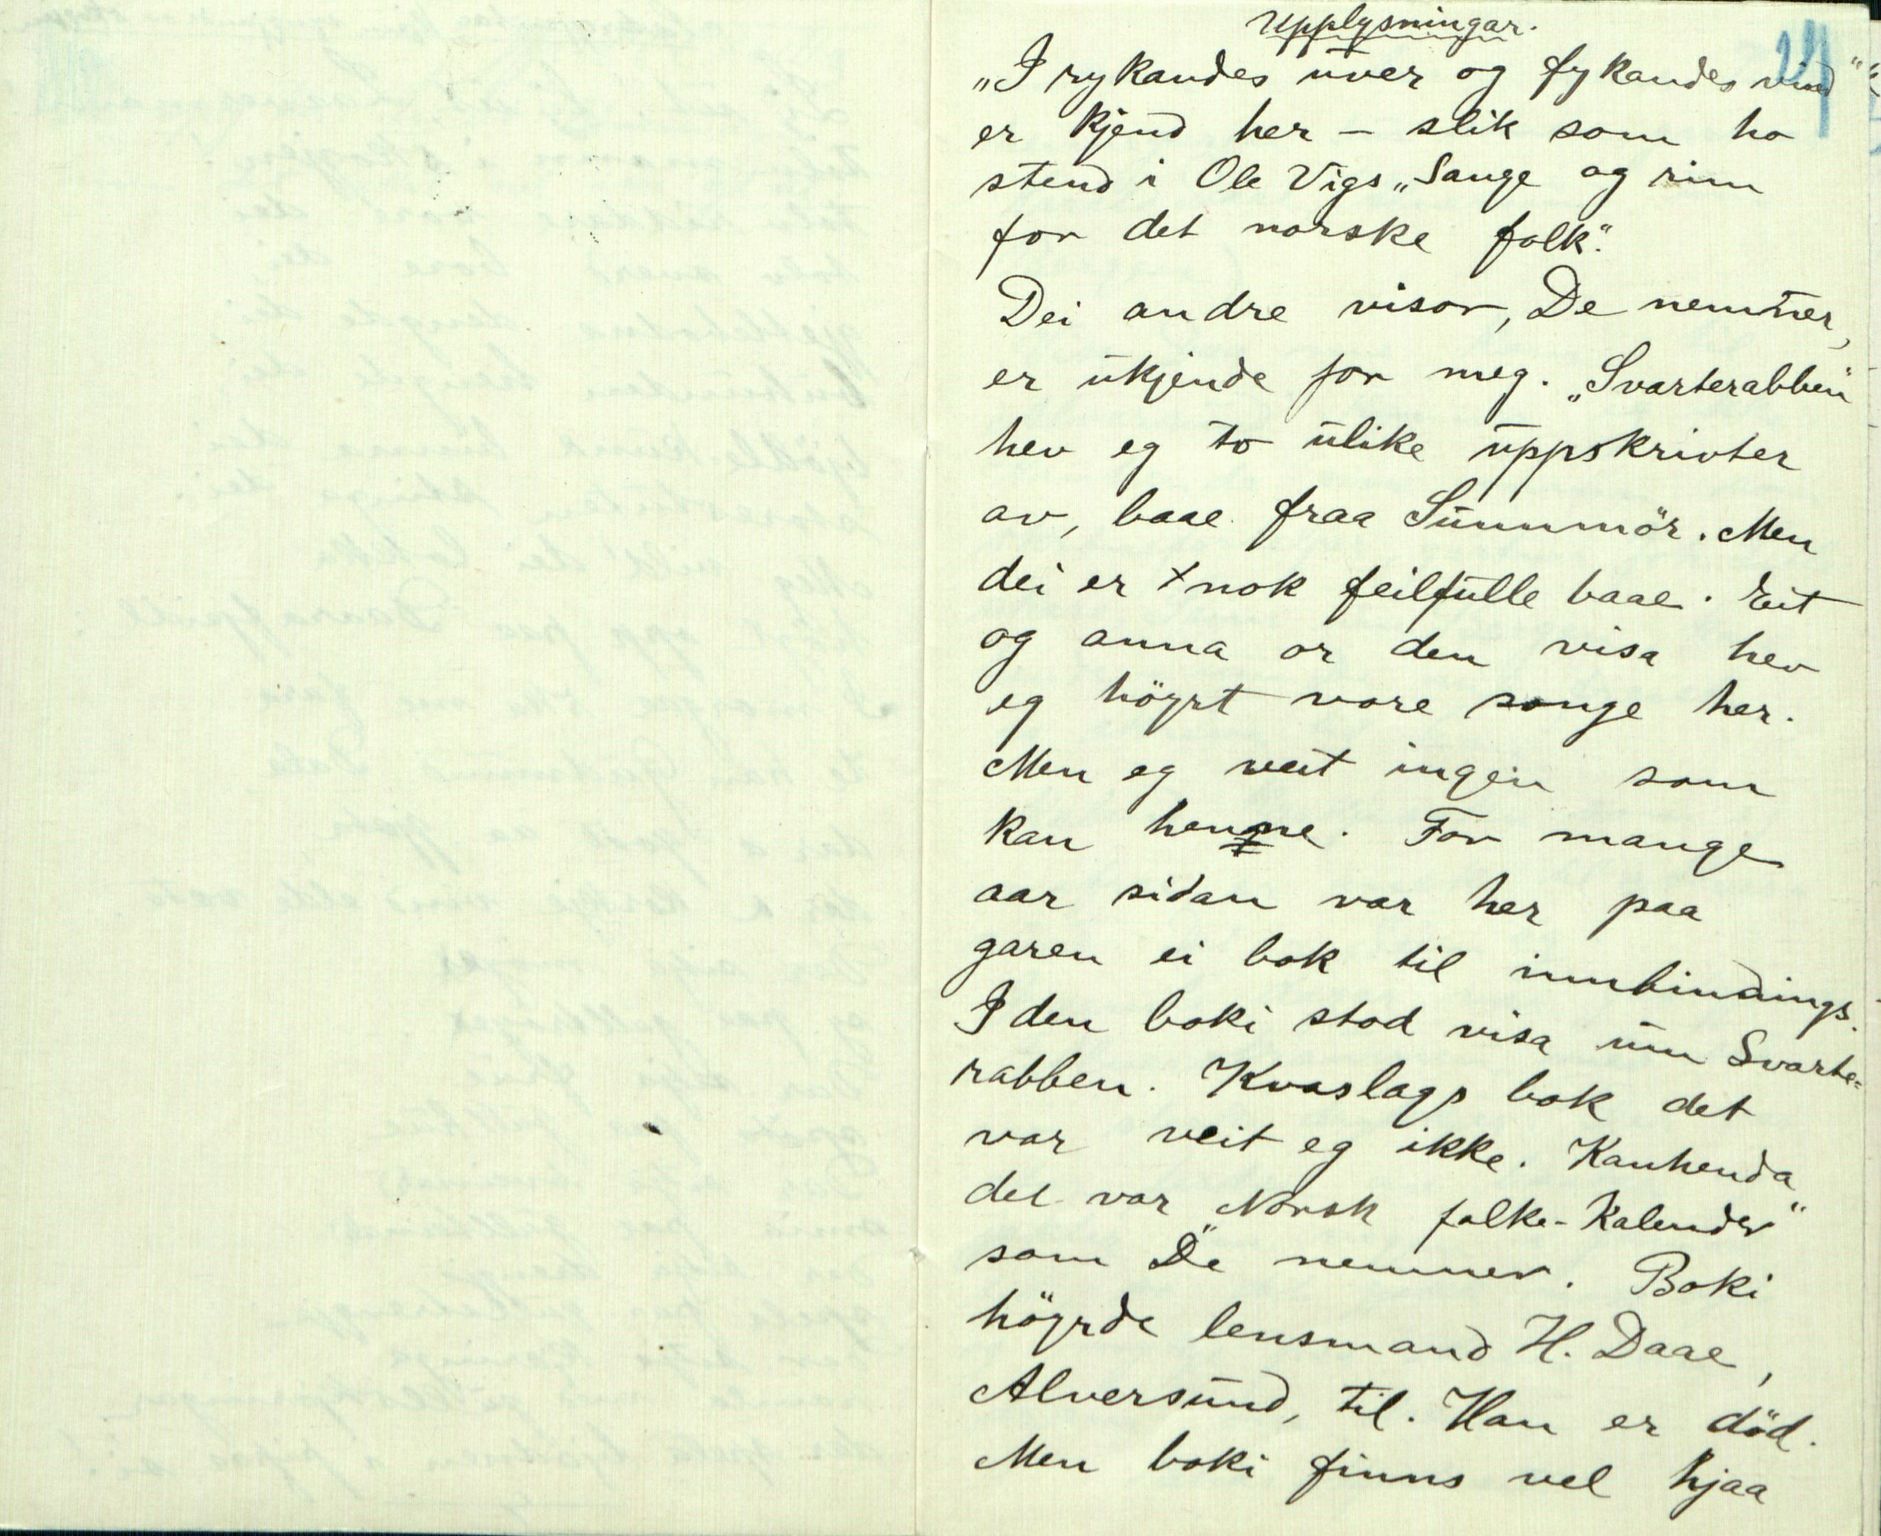 Upplysningar.
24
„I rykandes uver og fykandes vind“
er kjend her – slik som ho
stend i Ole Vigs „Sange og rim
for det norske folk“.
Dei andre visor, De nemner,
er ukjende for meg. „Svarterabben“
hev eg to ulike uppskrivter
av, baae fraa Sunnmör. Men
dei er nok feilfulle baae. Eit
og anna or den visa hev
eg höyrt vore songe her.
Men eg veit ingen som
kan henne. For mange
aar sidan var her paa
garen ei bok til innbindings.
I den boki stod visa um Svarte=
rabben. Kvaslags bok det
var veit eg ikke. Kanhenda
det var „Norsk folke-Kalender“
som De nemner. Boki
höyrde lensmand H. Daae,
Alversund, til. Han er död.
Men boki finns vel hjaa